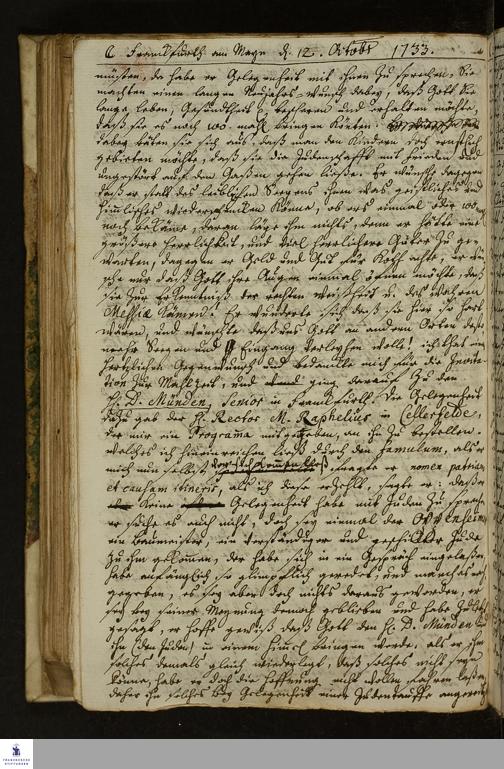 6 Franckfurth am Mayn d. 12. Octobr 1733.
müsten, da habe er Gelegenheit mit ihnen zu sprechen. Sie
machten einen langen Neujahrs-Wunsch dabey, daß Gott Sie
lange Leben, Gesundheit bescheren und erhalten möchte,
daß sie es noch 100. mahl bringen könten;
dabey bäten sie sich aus, daß man den Kindern doch ernstlich
gebieten möchte, daß sie die Judenschafft mit frieden und
ungestört auf den Gaßen gehen ließe. Er wünsche dagegen
daß er statt des leiblichen Seegens ihnen was geistliches und
himmlisches wieder könne, ob ers einmal oder 100
noch bekäme, daran läge ihm nichts, denn er hätte eine
größere Herrlichkeit, und viel herrlichere Güter zu ge-
warten, dagegen er Gold und Gut für Koth achte, er wün-
sche nur daß Gott ihre Augen einmal öfnen möchte, daß
sie zur Erkenntniß der rechten Weisheit u. des wahren
Messiæ kämen. Er wunderte sich daß sie hier so hart
wären, und wünschte daß uns Gott an andern Orten desto
mehr Seegen und Eingang verleyhen wolle! ich that einen
hertzlichen Gegenwunsch und bedanckte mich für die Invita-
tion zur Mahlzeit, und ging darauf zu dem
H. D. Münden, Senior in Franckfurth. Die Gelegenheit
dazu gab der H. Rector M. Raphelius in Cellerfelde,
der mir ein Programa mitgegeben, an ihn zu bestellen.
welches ich hineinreichen ließ durch den famulum, als er
mich nun selbst vor sich kommen ließ, fragte er nomen patriam
et causam itineris, als ich diese erzehlt, sagte er: daß er
keine Gelegenheit habe mit Juden zu sprechen
er suche es auch nicht, doch sey einmal der Oppenheim
ein Baumeister, ein verständiger und geschickter Jude
zu ihm gekommen, der habe sich in ein Gespräch eingelaßen,
habe anfänglich so glimpflich geredet, und manches nach
gegeben, es sey aber doch nichts daraus geworden, er
sey bey seiner Meynung dennoch geblieben und habe zuletzt
gesagt, er hoffe gewiß daß Gott den H. D. Münden und
ihn (den Juden) in einem Himmel bringen werde, als er ihm
solches damals gleich wiederlegt, daß solches nicht seyn
könne, habe er doch die Hoffnung nicht wollen fahren laßen,
daher ihn solches bey Gelegenheit einer Judentauffe
FRANCKESCHE
STIFTUNGEN